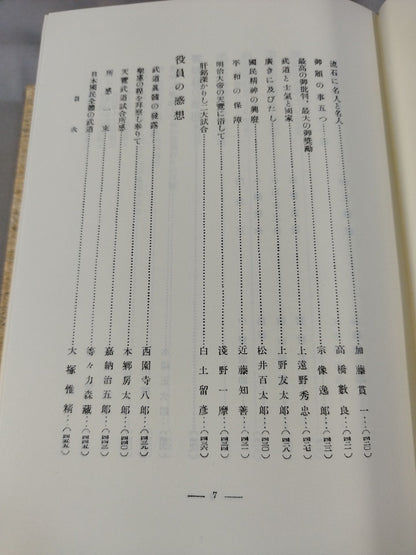 流石に名人と名人……加藤貫一…(四二〇)
御願の事五つ……高橋數良…(四二一)
最高の御批判、最大の御奬勵……宗像逸郎…(四二三)
武道と士氣と國家……上遠野秀忠…(四二七)
廣きに及びたし……上野友太郎…(四二八)
國民精神の興廢……松井百太郎…(四三〇)
平和の保障……近藤知善…(四三一)
明治大帝の天覽に浴して……淺野一摩…(四三四)
肝銘深かりし二大試合……白土留彥…(四三六)
役員の感想
武道眞髓の發露……西園寺八郎…(四三九)
聖慮の程を拜察し奉りて……本鄕房太郎…(四四一)
天覽武道試合所感……嘉納治五郎…(四四三)
所感一束……佐々力森藏…(四四五)
日本國民全體の武道……大塚惟精…(四五五)
目次
7